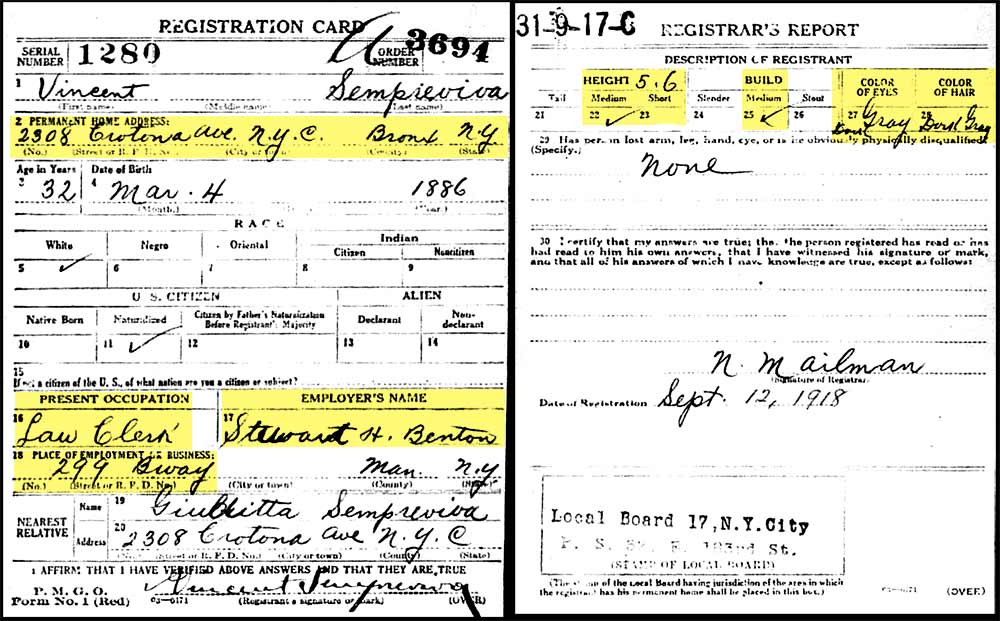 REGISTRATION CARD
SERIAL NUMBER 1280 ORDER NUMBER 3694
1 Vincent Sempreviva
(First name) (Middle name) (Last name)
2 PERMANENT HOME ADDRESS:
2308 Crotona Ave. N.Y.C. Bronx N.Y.
(No.) (Street or R. F. D. No.) (City or town) (County) (State)
Age in Years Date of Birth
3 32 4 Mar. 4 1886
(Month.) (Year.)
RACE
White Negro Oriental Indian
Citizen Noncitizen
5 ✓ 6 7 8 9
U. S. CITIZEN ALIEN
Native Born Naturalized Citizen by Father's Naturalization Before Registrant's Majority Declarant Non-declarant
10 11 ✓ 12 13 14
15
If not a citizen of the U. S., of what nation are you a citizen or subject?
PRESENT OCCUPATION EMPLOYER'S NAME
16 Law Clerk 17 Steward H. Benton
18 PLACE OF EMPLOYMENT OR BUSINESS:
299 Bway Man. N.Y.
(No.) (Street or R. F. D. No.) (City or town) (County) (State)
NEAREST RELATIVE
Name 19 Sempreviva
Address 20 2308 Crotona Ave N.Y.C
(No.) (Street or R. F. D. No.) (City or town) (County) (State)
I AFFIRM THAT I HAVE VERIFIED ABOVE ANSWERS AND THAT THEY ARE TRUE
P. M. G. O.
Form No. 1 (Red) 03—6171 Vincent Sempreviva
(Registrant's signature or mark) (OVER)
31-9-17-C REGISTRAR'S REPORT
DESCRIPTION OF REGISTRANT
HEIGHT 5.6 BUILD COLOR OF EYES COLOR OF HAIR
Tall Medium Short Slender Medium Stout
21 22 ✓ 23 24 25 ✓ 26 27 Gray 28 Dark Gray
29 Has person lost arm, leg, hand, eye, or is he obviously physically disqualified?
(Specify.)
None
30 I certify that my answers are true; that the person registered has read or has
had read to him his own answers, that I have witnessed his signature or mark,
and that all of his answers of which I have knowledge are true, except as follows:
N. Mailman
(Signature of Registrar)
Date of Registration Sept. 12, 1918
Local Board 17, N.Y.City
P. S. St.
(STAMP OF LOCAL BOARD)
(The stamp of the Local Board having jurisdiction of the area in which
the registrant has his permanent home shall be placed in this box.)
03—6171 (OVER)